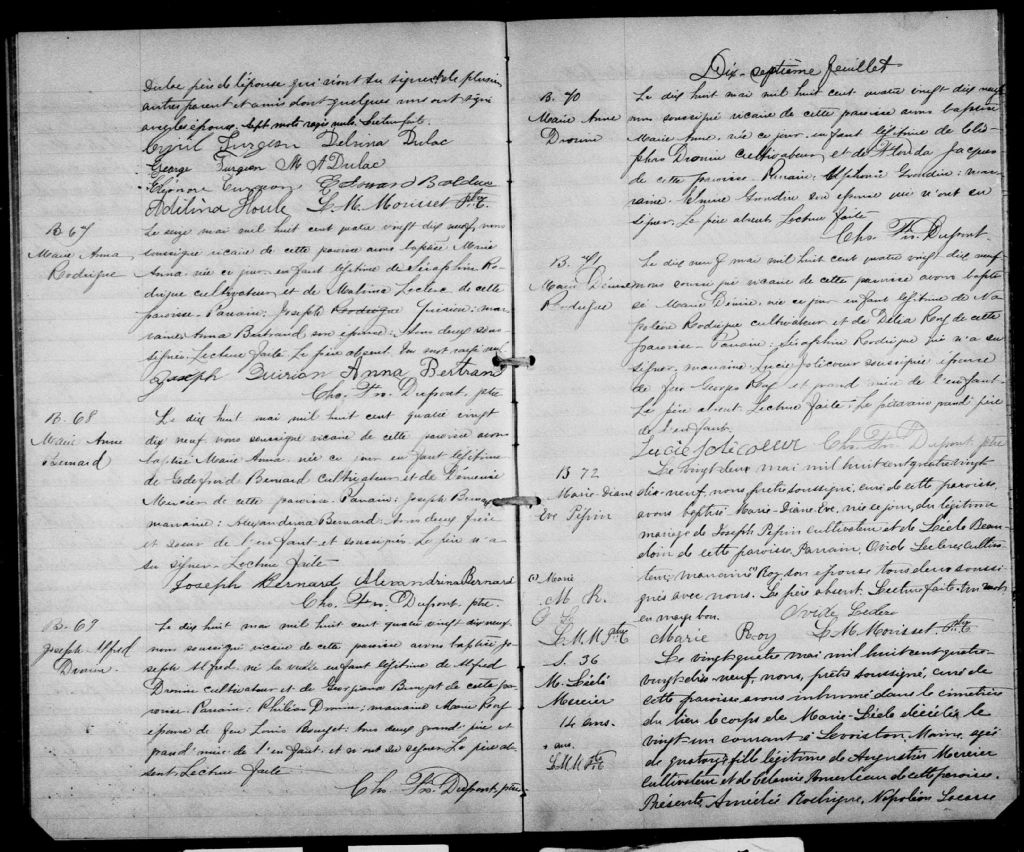 Dulac père de l'épouse qui n'ont su signer et de plusieurs
autres parent et amis dont quelques uns ont signé
avec les époux. Sept mots rayés nuls. Lecture faite.
Cyril Turgeon Delvina Dulac
George Turgeon M A Dulac
Eléonore Turgeon Edward Bolduc
Adélina Houle L. M. Morisset Ptr.
B 67
Marie Anna
Rodrigue
Le seize mai mil huit cent quatre vingt dix neuf, nous
soussigné vicaire de cette paroisse avons baptisé Marie
Anna née ce jour enfant légitime de Séraphin Ro-
drigue cultivateur et de Malvina Leclerc de cette
paroisse. Parrain: Joseph Rodrigue Quirion: mar-
raine Anna Bertrand son épouse: tous deux sous-
signés. Lecture faite. Le père absent. Un mot rayé nul
Joseph Quirion Anna Bertran
Cho. Fr. Dupont. ptre
B. 68
Marie Anne
Bernard
Le dix huit mai mil huit cent quatre vingt
dix neuf nous soussigné vicaire de cette paroisse avons
baptisé Marie Anna née ce jour enfant légitime
de Godefroid Bernard cultivateur et de
Mercier de cette paroisse. Parrain: Joseph Bernard
marraine: Alexandrina Bernard: tous deux frère
et soeur de l'enfant et soussignés. Le père n'a
su signer. Lecture faite
Joseph Bernard Alexandrina Bernard
Cho. Fr. Dupont. ptre.
B. 69
Joseph Alfred
Drouin
Le dix huit mai mil huit cent quatre vingt dix neuf.
nous soussigné vicaire de cette paroisse avons baptisé Jo-
seph Alfred, né la veille enfant légitime de Alfred
Drouin cultivateur et de Georgiana de cette pa-
roisse. Parrain: Philias Drouin: marraine Marie Roy
épouse de feu Louis: tous deux grand père et
grand mère de l'enfant et n'ont su signer. Le père ab-
sent. Lecture faite
Cho. Fr. Dupont. ptre
Dix-septième feuillet
B. 70
Marie Anne
Drouin
Le dix huit mai mil huit cent quatre vingt dix neuf
nous soussigné vicaire de cette paroisse avons baptisé
Marie Anne, née ce jour, enfant légitime de
Drouin cultivateur et de Florida Jacques
de cette paroisse. Parrain: Alphonse Grondin: mar-
raine: Grondin son épouse qui n'ont su
signer. Le père absent. Lecture faite
Cho. Fr. Dupont.
B. 71
Marie
Rodrigue
Le dix neuf mai mil huit cent quatre vingt dix neuf
nous soussigné vicaire de cette paroisse avons bapti-
sé Marie, née ce jour enfant légitime de Na-
poléon Rodrigue cultivateur et de Délia Roy de cette
paroisse. Parrain: Séraphin Rodrigue qui n'a su
signer, marraine Lucie Jolicoeur soussignée épouse
de feu Georges Roy et grand mère de l'enfant.
Le père absent. Lecture faite. Le parrain grand père
de l'enfant.
Lucie Jolicoeur Cho. Fr. Dupont ptre
B 72
Marie-Diane
Eve Pépin
Le vingt-deux mai mil huit cent quatre vingt-
dix-neuf, nous, prêtre soussigné, curé de cette paroisse,
avons baptisé Marie-Diane-Eve, née ce jour, du légitime
mariage de Joseph Pépin cultivateur et de Beau-
doin de cette paroisse. Parrain, Ovide Leclerc cultiva-
teur; marraine Roy, son épouse tous deux soussi-
gnés avec nous. Le père absent. Lecture faite. Un mot
en marge bon. Ovide Leclerc
Marie Roy L. M. Morisset. Ptr
(1) Marie
M. R.
O. L.
L. M. M Ptre
S. 36
M.
Mercier
14 ans.
L. M. M Ptr
Le vingt-quatre mai mil huit cent quatre-
vingt-dix-neuf, nous, prêtre soussigné, curé de
cette paroisse avons inhumé dans le cimetière
du lieu le corps de Marie- décédée le
vingt-un courant à Lewiston, Maine, agée
de quatorze, fille légitime de Augustin Mercier
cultivateur et de de cette paroisse.
Présents, Amédée Rodrigue, Napoléon